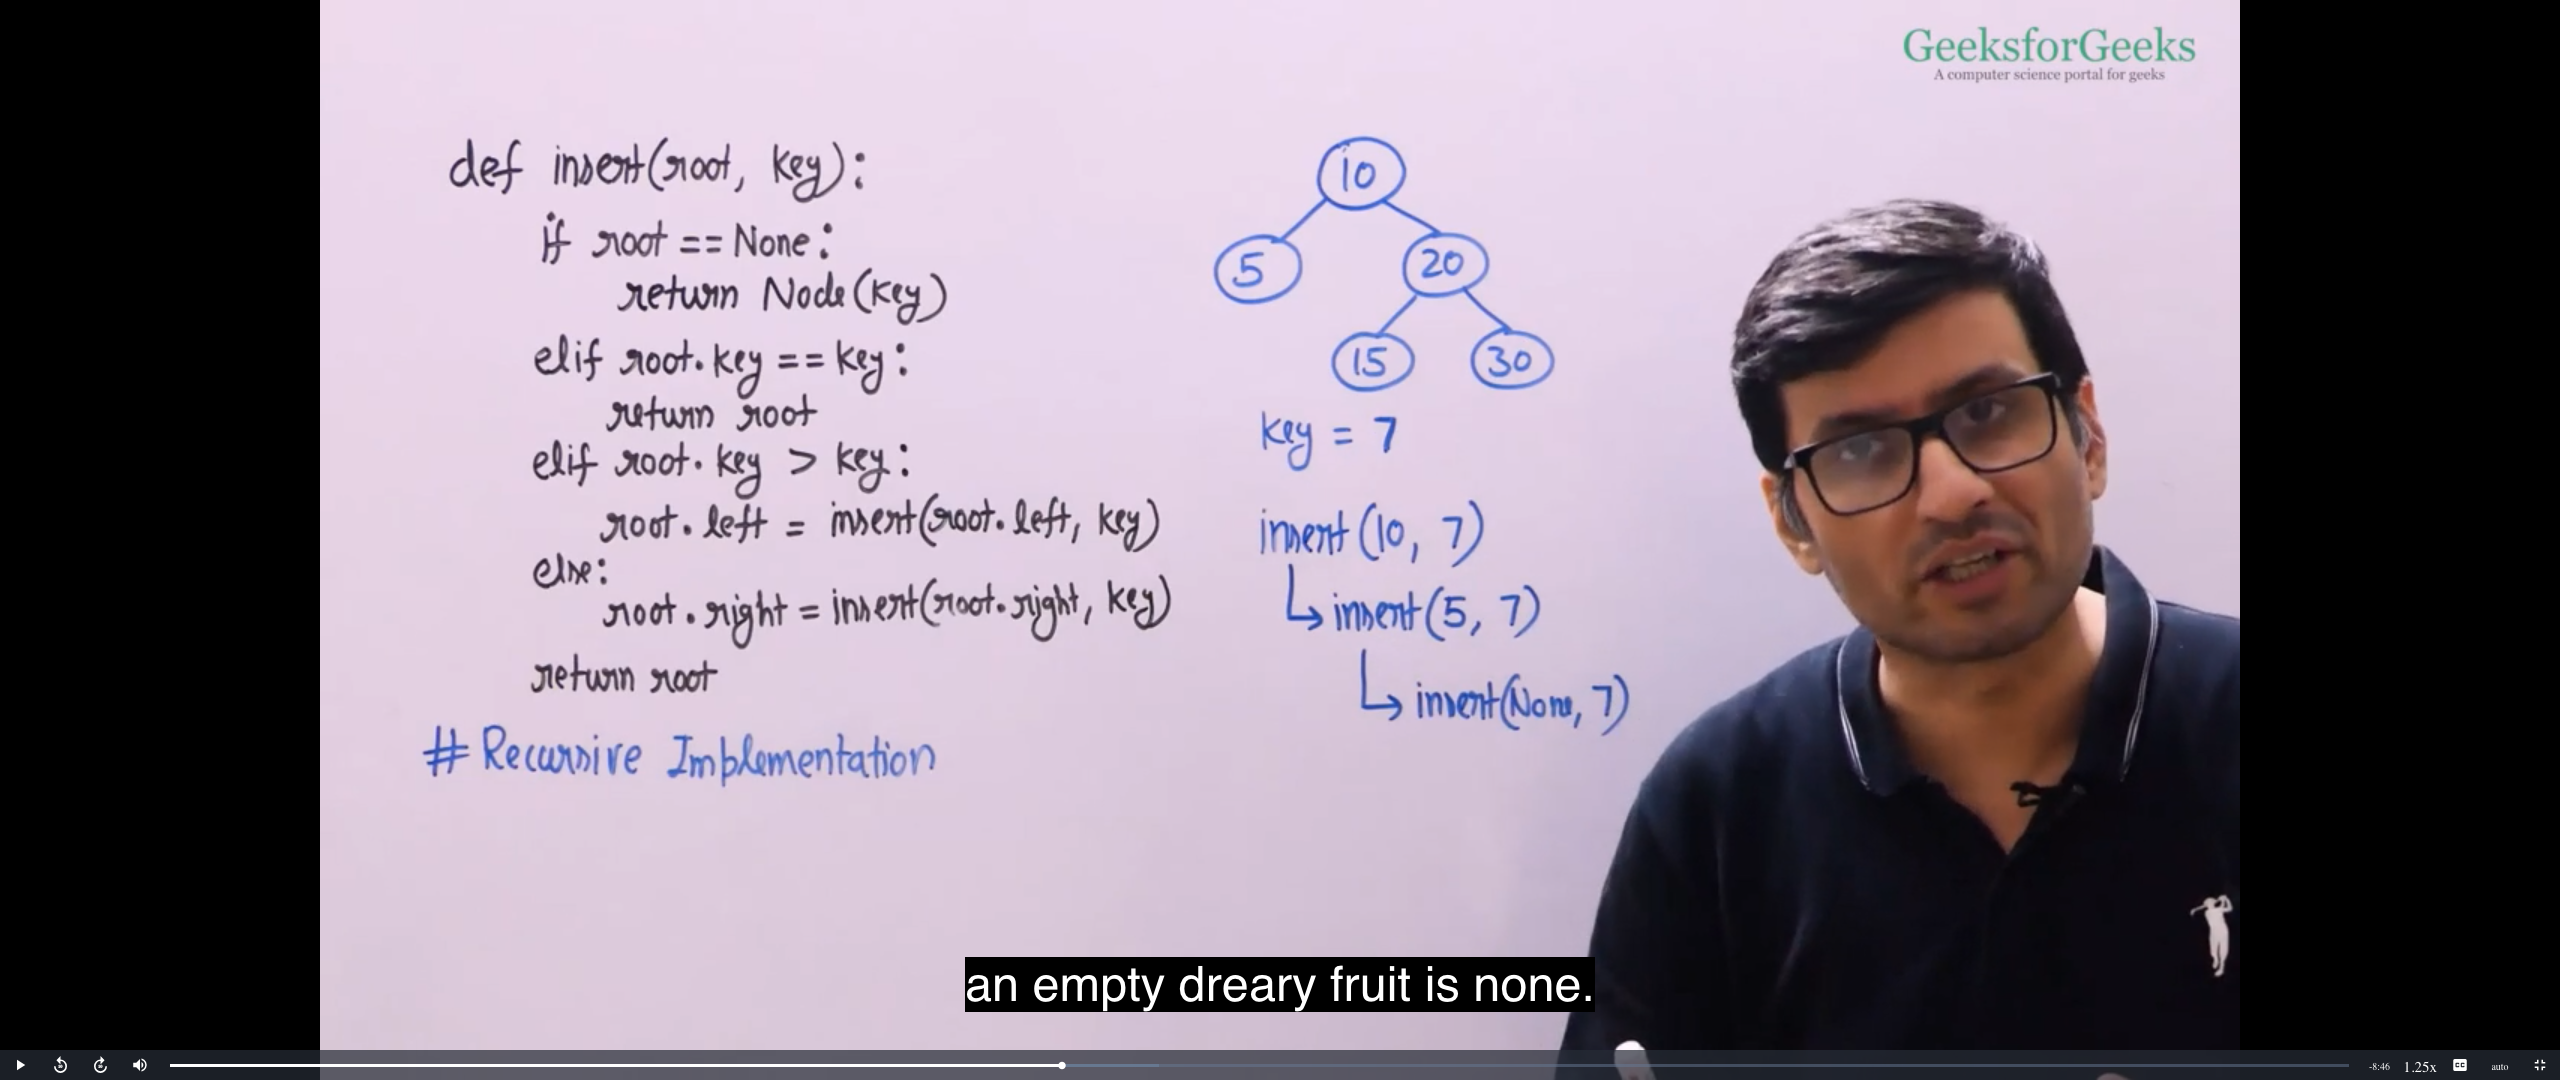 GeeksforGeeks
A computer science portal for geeks
def insert(root, key):
if root == None:
return Node(key)
elif root.key == key:
return root
elif root.key > key:
root.left = insert(root.left, key)
else:
root.right = insert(root.right, key)
return root
# Recursive Implementation
10
5
20
15
30
key = 7
insert(10, 7)
insert(5, 7)
insert(None, 7)
an empty dreary fruit is none.
-8:46
1.25x
CC
auto